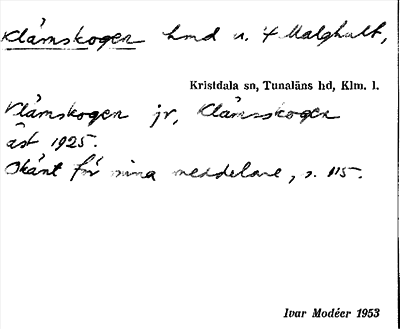 Klåmskogen hmd u. 4 Målghult,
Kristdala sn, Tunaläns hd, Klm. l.
Klåmskogen jr, Klåmsskogen
äst 1925.
Okänt för mina meddelare, s. 115.
Ivar Modéer 1953